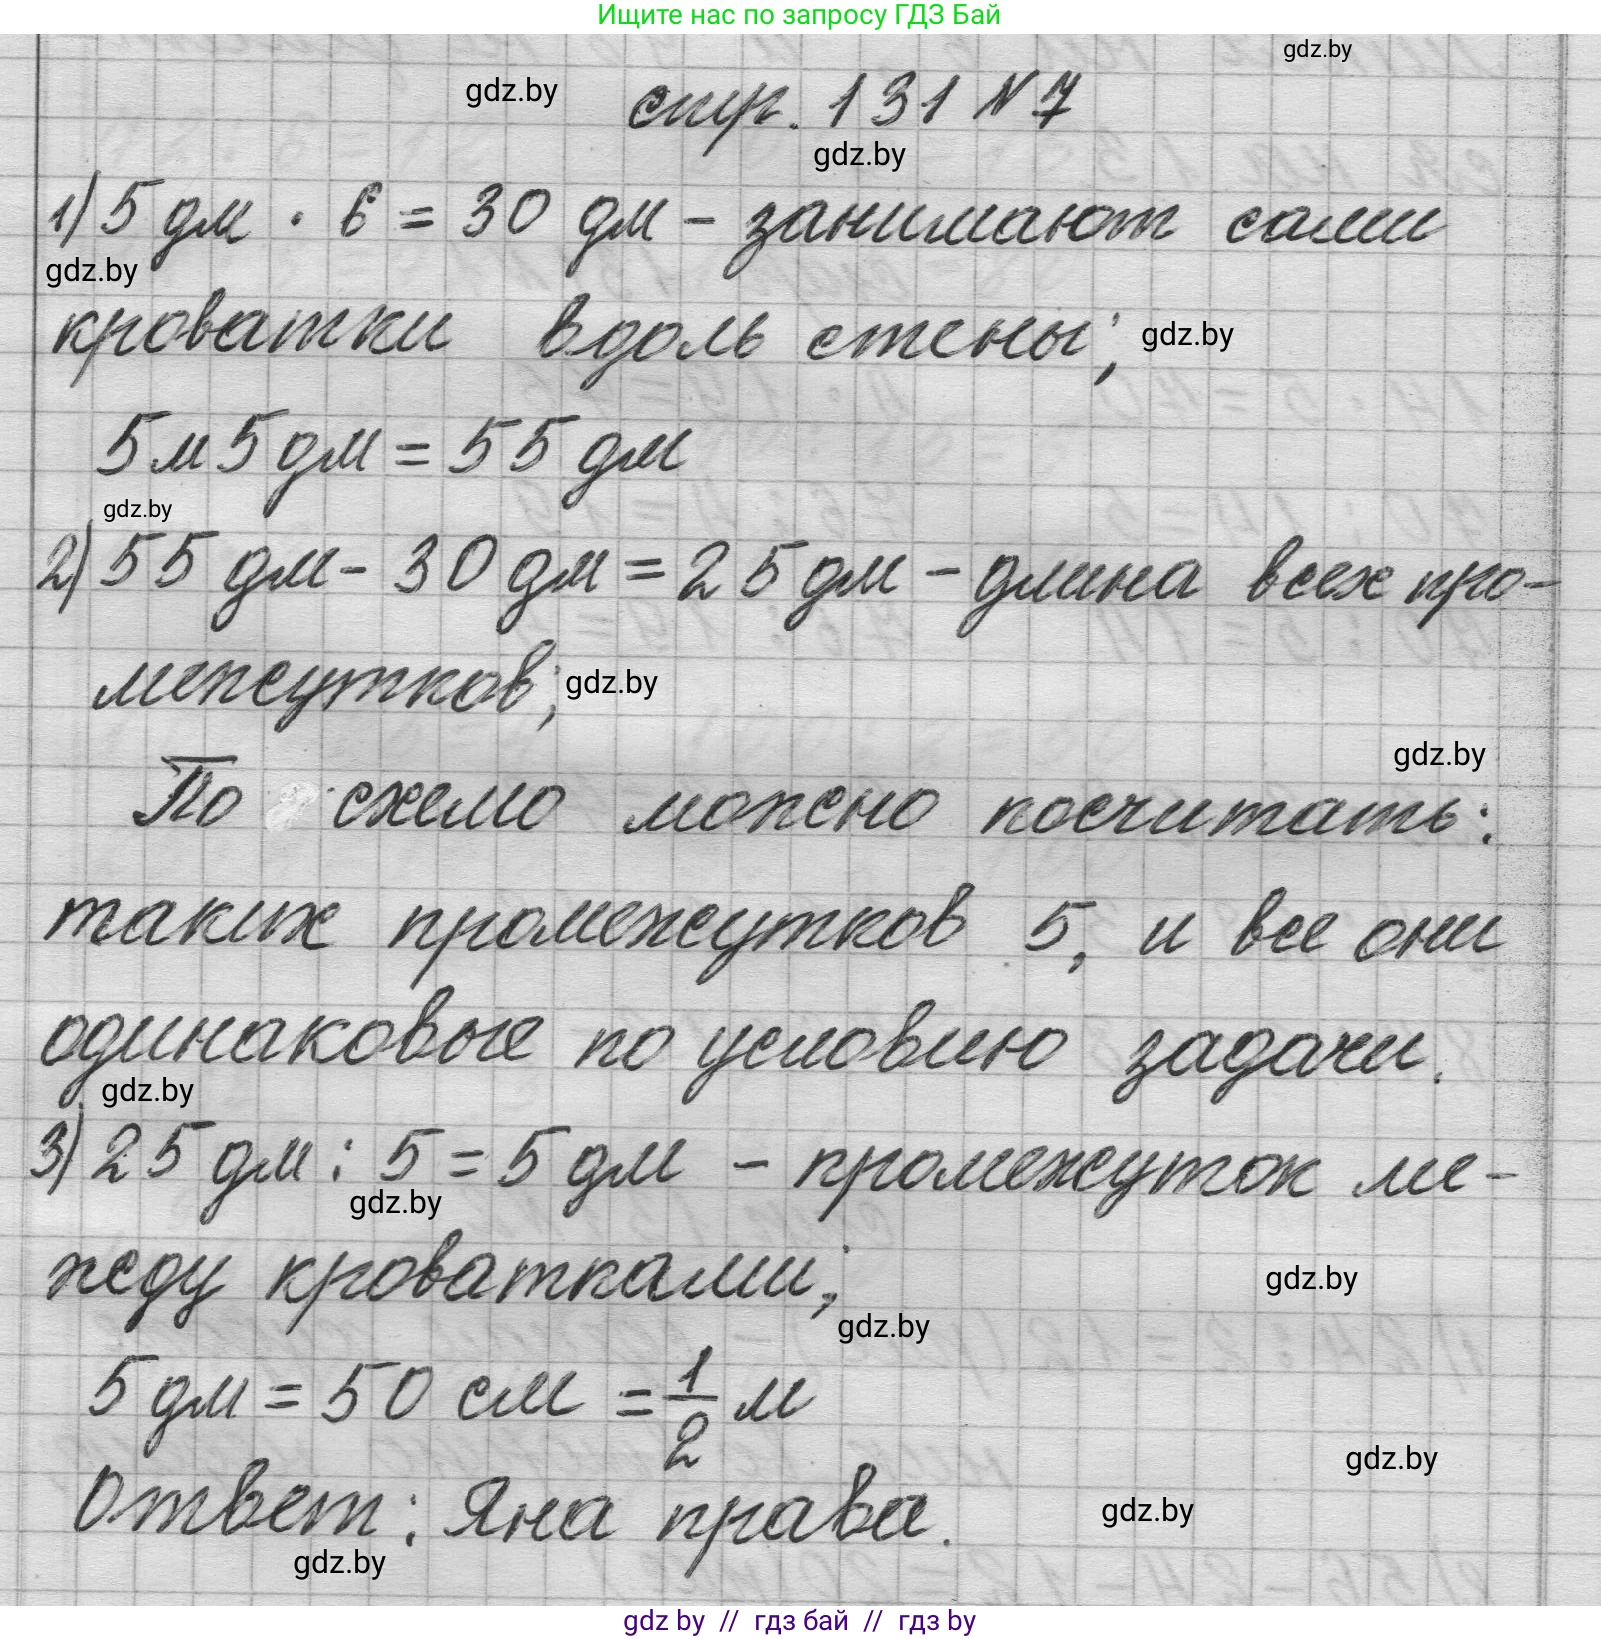 Ищите нас по запросу ГДЗ Бай
gdz.by
gdz.by
стр. 131 № 7
gdz.by
1) 5 дм · 6 = 30 дм - занимают сами
gdz.by
кроватки вдоль стены;
gdz.by
5 м 5 дм = 55 дм
gdz.by
2) 55 дм - 30 дм = 25 дм - длина всех про-
межутков;
gdz.by
gdz.by
По схемо можно посчитать:
таких промежутков 5, и все они
одинаковые по условию задачи.
gdz.by
3) 25 дм : 5 = 5 дм - промежуток ме-
gdz.by
жду кроватками;
gdz.by
gdz.by
5 дм = 50 см = 1/2 м
gdz.by
Ответ: Яна права.
gdz.by
gdz.by
gdz by // гдз бай // гдз by